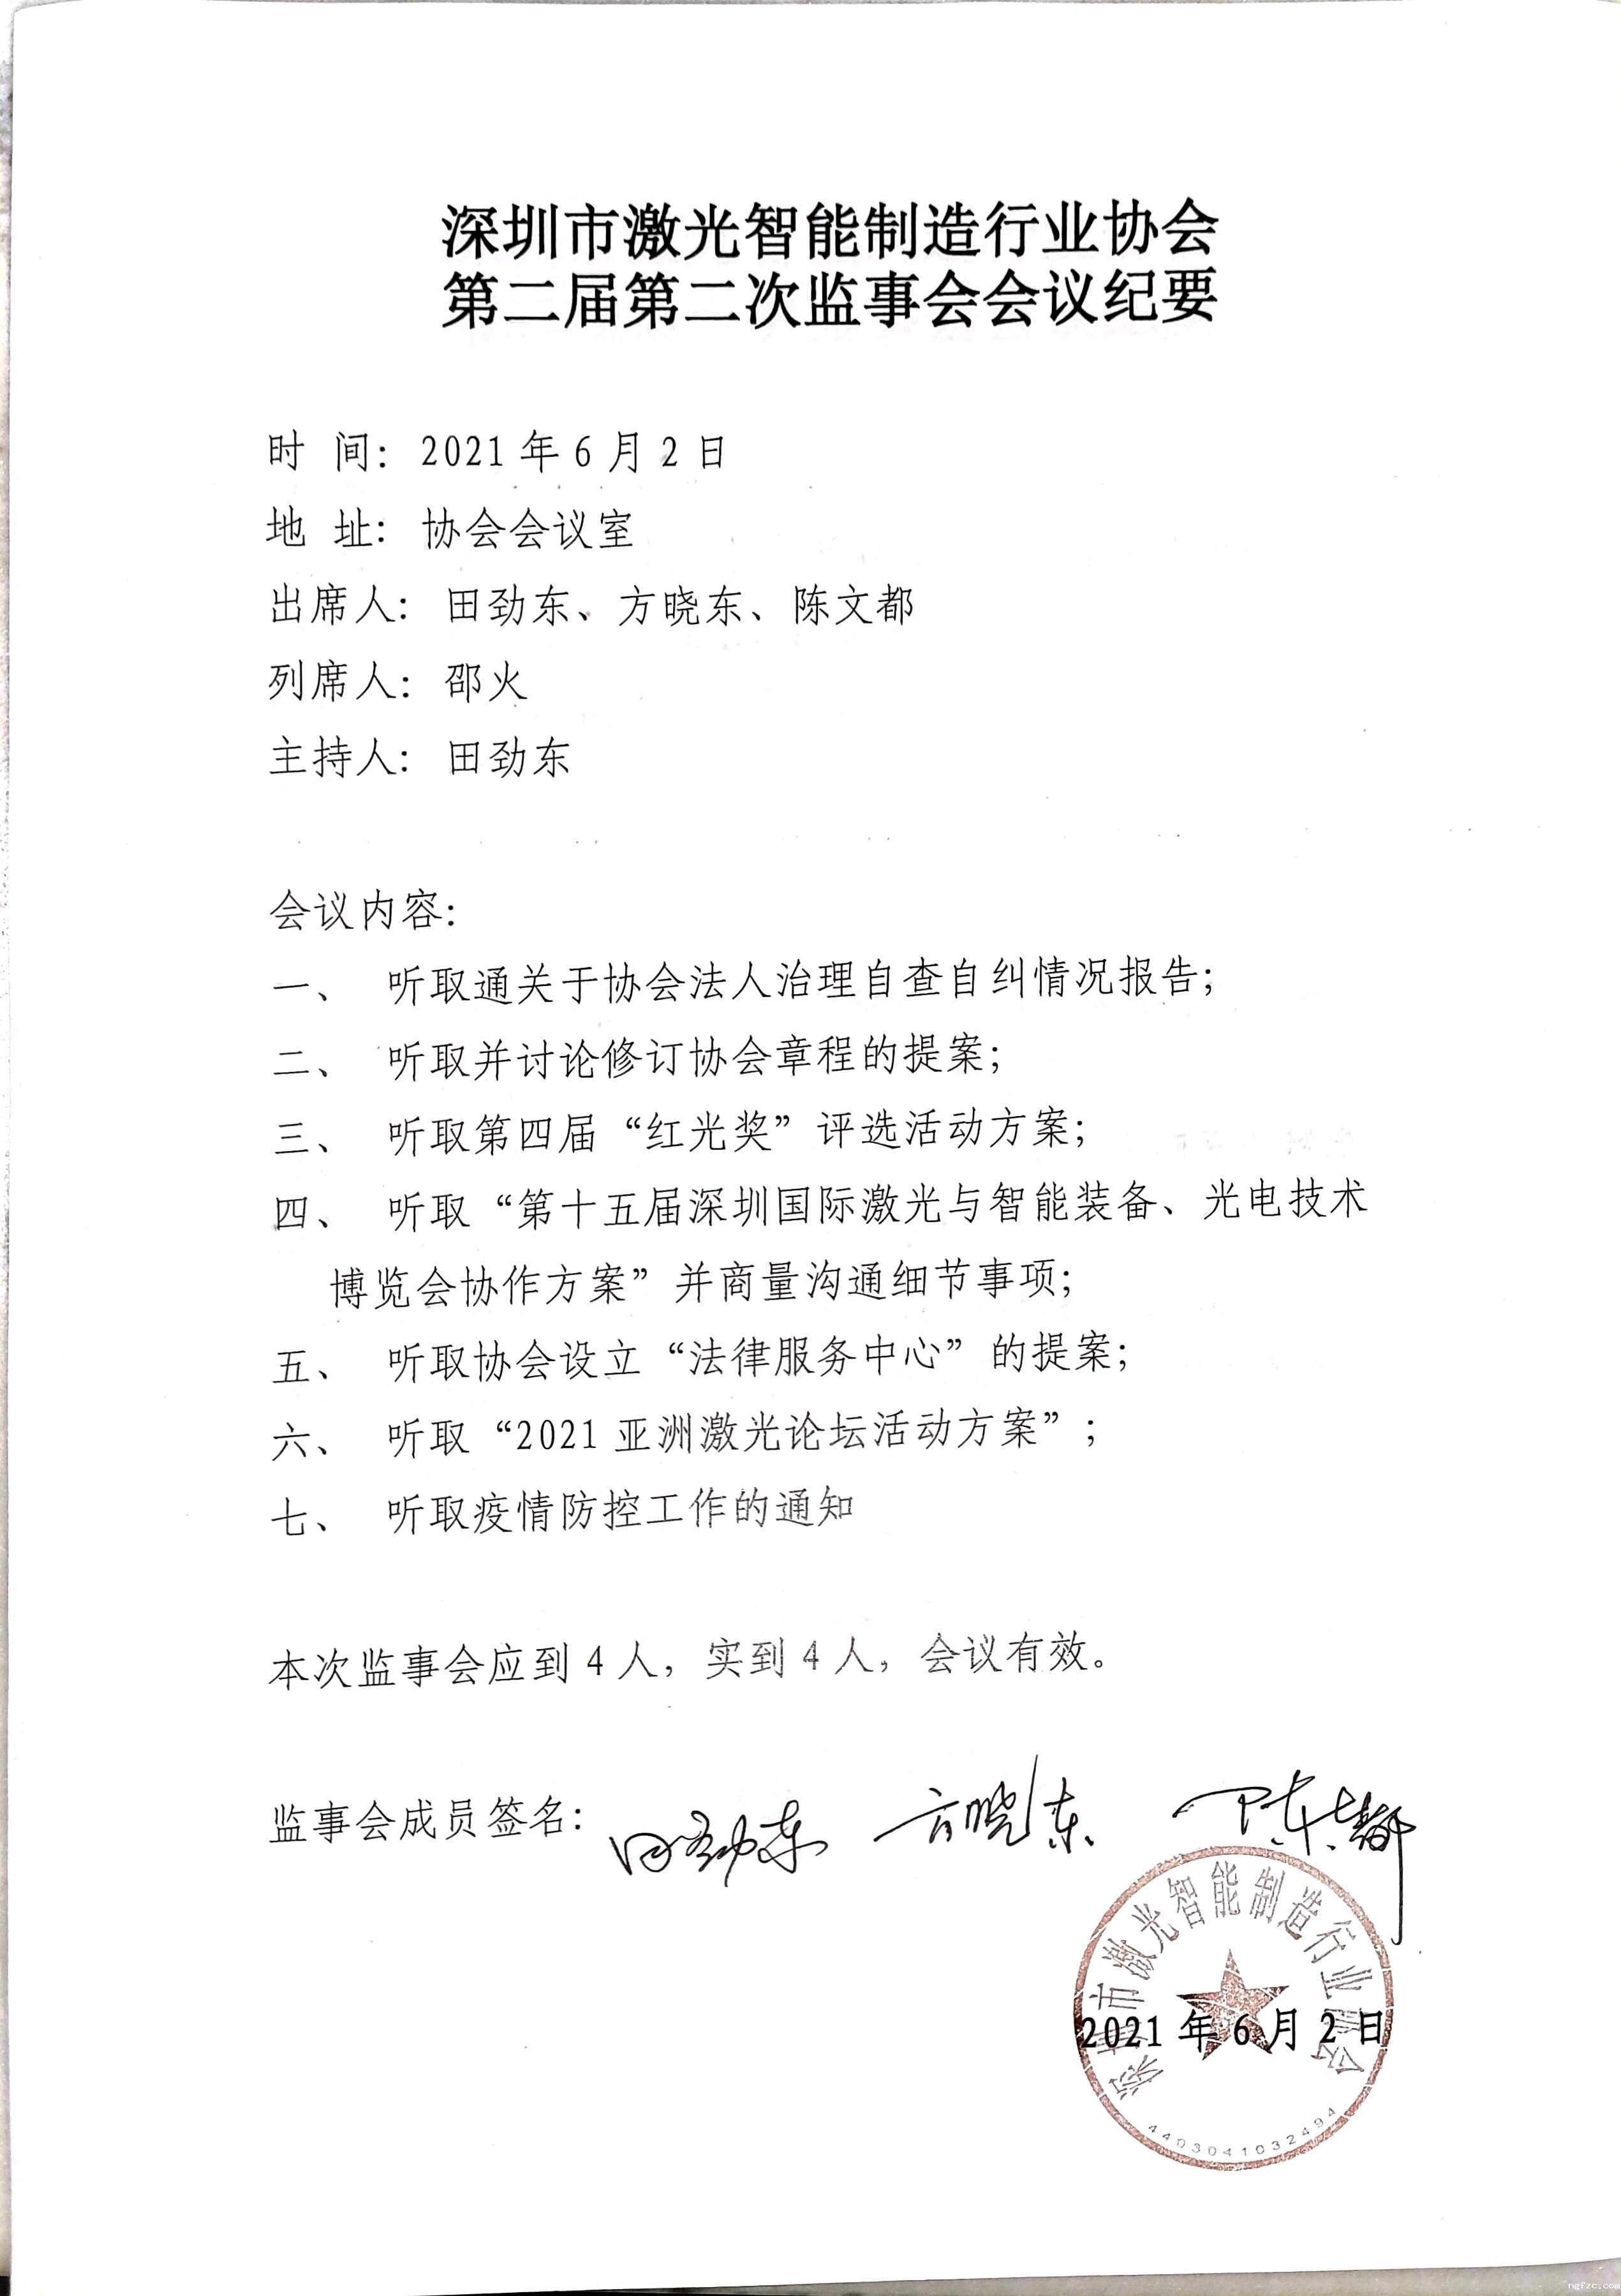 深圳市激光智能制造行业协会
第二届第二次监事会会议纪要
时 间: 2021年6月2日
地 址: 协会会议室
出席人: 田劲东、方晓东、陈文都
列席人: 邵火
主持人: 田劲东
会议内容:
一、 听取通关于协会法人治理自查自纠情况报告;
二、 听取并讨论修订协会章程的提案;
三、 听取第四届“红光奖”评选活动方案;
四、 听取“第十五届深圳国际激光与智能装备、光电技术
博览会协作方案”并商量沟通细节事项;
五、 听取协会设立“法律服务中心”的提案;
六、 听取“2021亚洲激光论坛活动方案”;
七、 听取疫情防控工作的通知
本次监事会应到4人,实到4人,会议有效。
监事会成员签名: 田劲东 方晓东 陈文都
深圳市激光智能制造行业协会
2021年6月2日
4403041032494
ngfzc.com